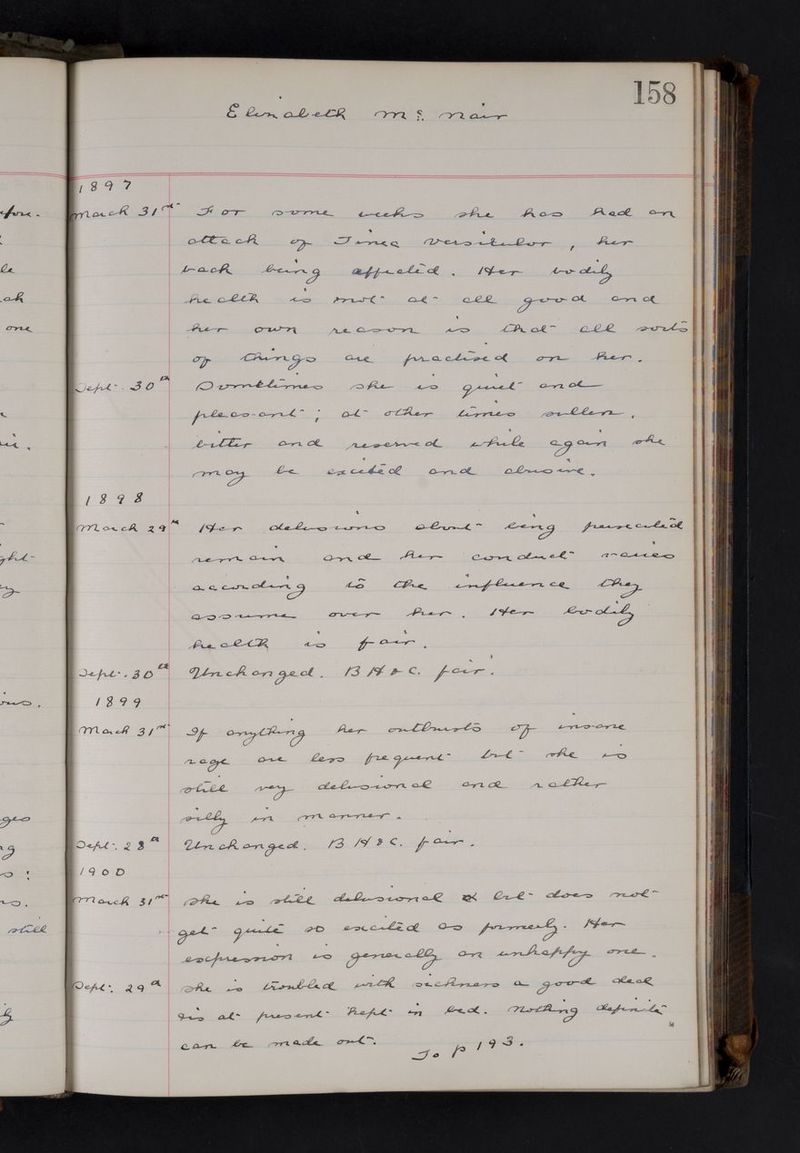 158
Elizabeth McNair
1897
March 31st For some weeks she has had an
attack of Tinea Versicolor, her
back being affected. Her bodily
health is not at all good and
her own reason is that all sorts
of things are practised on her.
Sept. 30th Sometimes she is quiet and
pleasant; at other times sullen,
bitter and reserved while again she
may be excited and abusive.
1898
March 29th Her delusions about being persecuted
remain and her conduct varies
according to the influence they
assume over her. Her bodily
health is fair.
Sept. 30th Unchanged. B H & C. fair.
1899
March 31st If anything her outbursts of insane
rage are less frequent but she is
still very delusional and rather
silly in manner.
Sept. 28th Unchanged. B H & C. fair.
1900
March 31st She is still delusional but does not
get quite so excited as formerly. Her
expression is generally an unhappy one.
Sept. 29th She is troubled with sickness a good deal
& is at present kept in bed. Nothing definite
can be made out. To p 193.